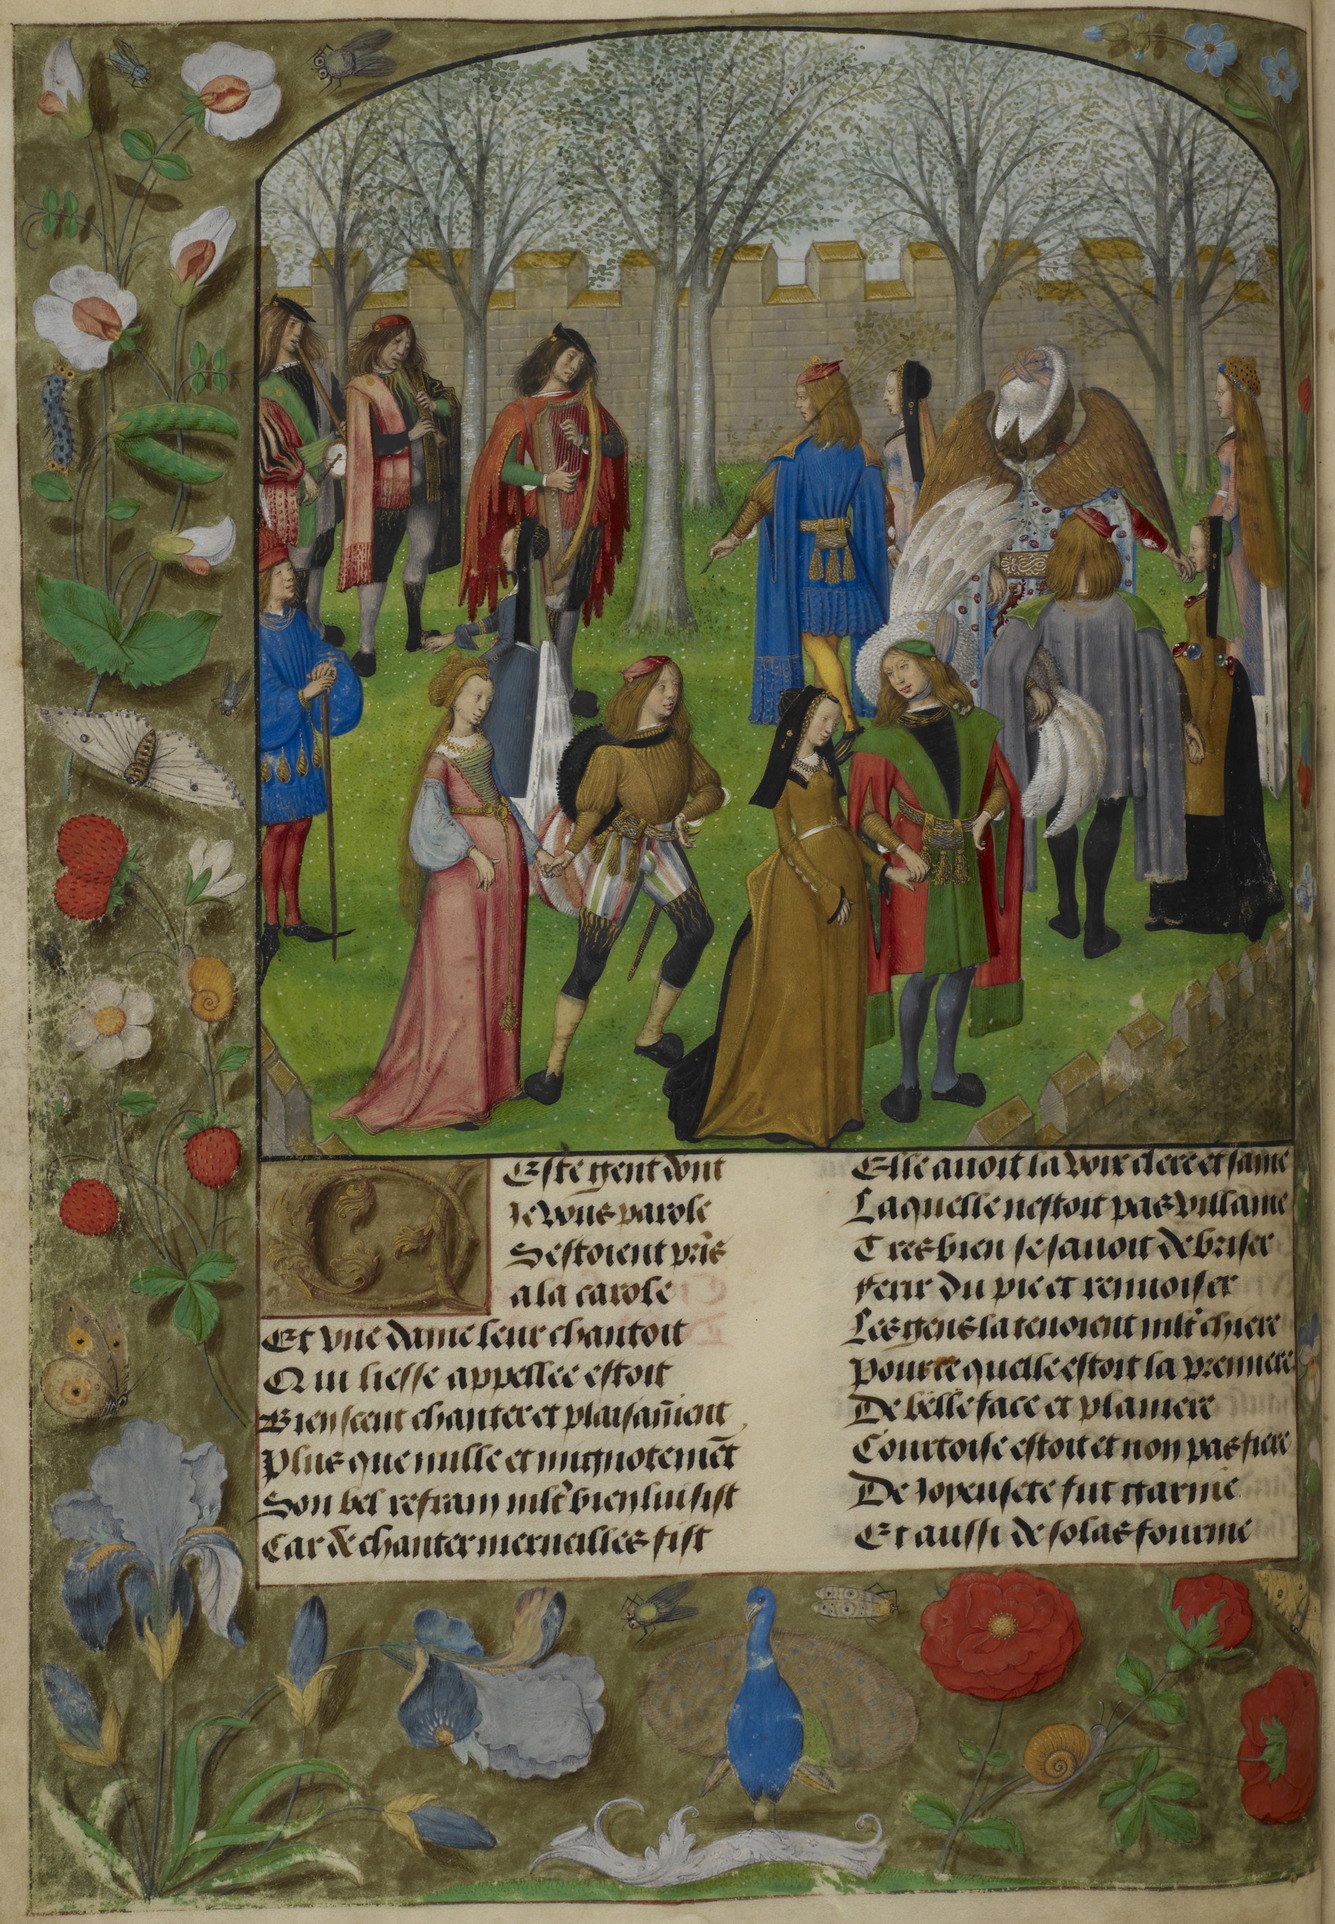 Ceste gent dont
Je vous parole
Sestoient pris
a la carole
Et vne dame leur chantoit
Qui liesse appellee estoit
Bien sceut chanter et plaisãment
Plus que nulle et mignotemẽt
Son bel refrain mlt bien lui sist
Car de chanter merueilles fist
Elle auoit la voix clere et saine
Laquelle nestoit pas villaine
Tres bien se sauoit debriser
Ferir du pie et renuoiser
Les gens la tenoient mlt chiere
Pource quelle estoit la premiere
De belle face et planiere
Courtoise estoit et non pas fiere
De Joyeusete fut garnie
Et aussi de solas fournie